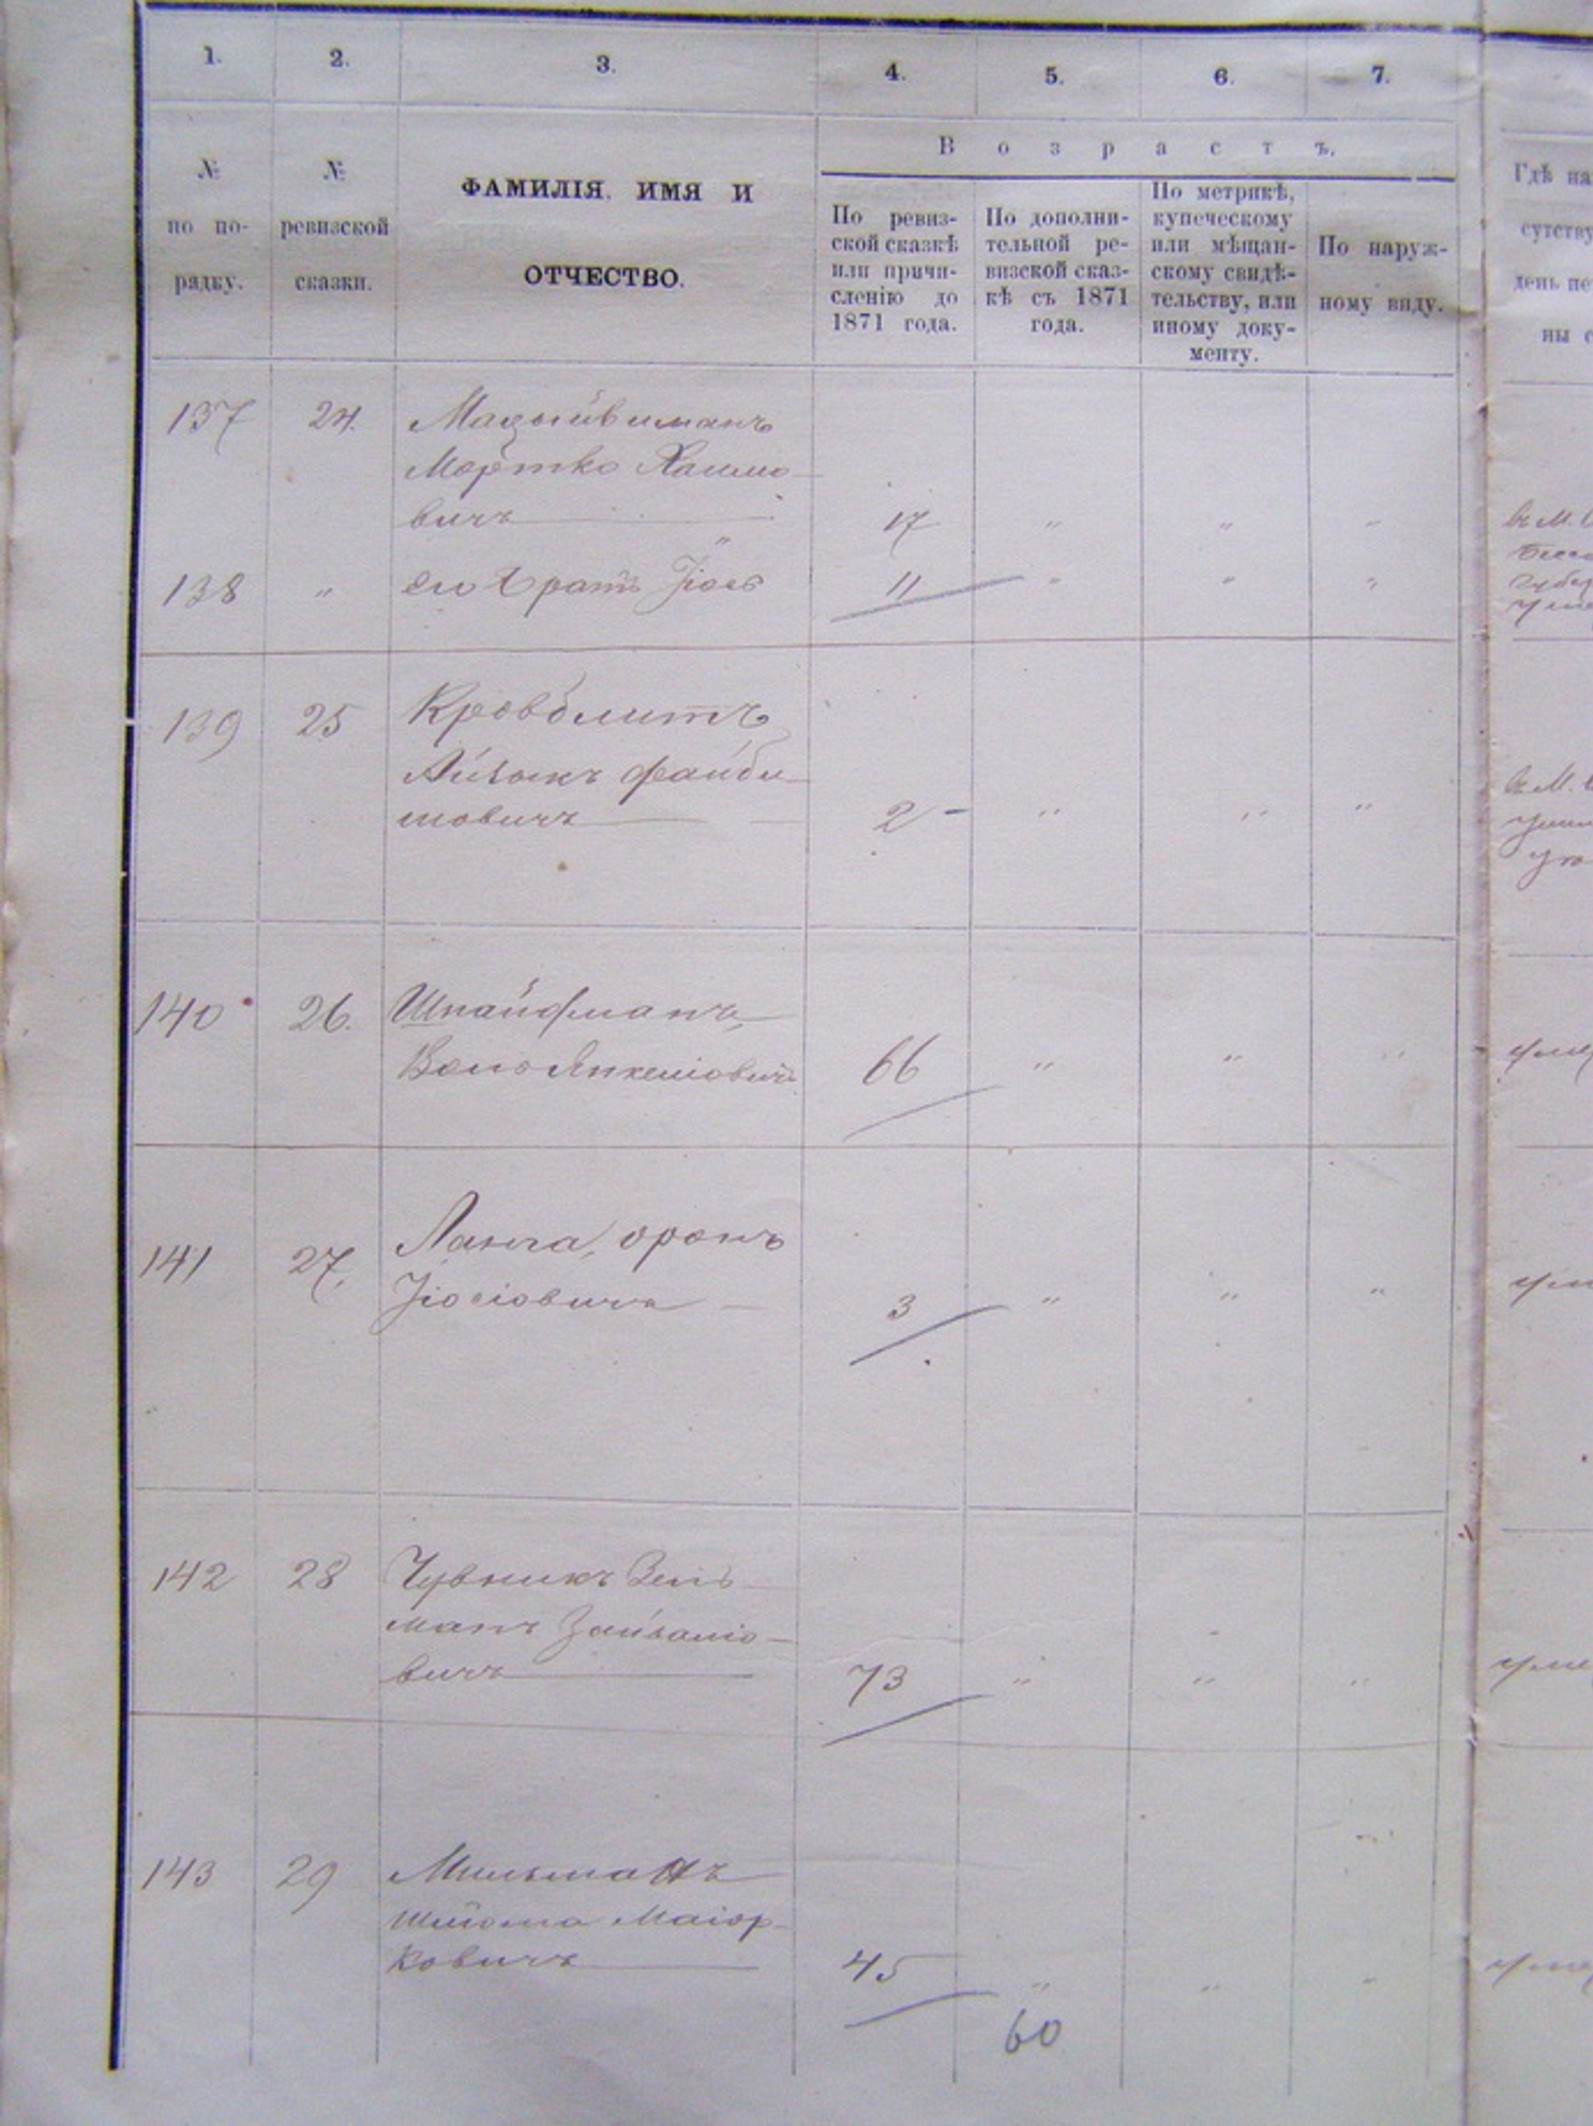 1. 2. 3. 4. 5. 6. 7.
№ по по-рядку.
№ ревизской сказки.
ФАМИЛІЯ. ИМЯ И
ОТЧЕСТВО.
Возрастъ.
По ревиз-
ской сказкѣ
или причи-
сленію до
1871 года.
По дополни-
тельной ре-
визской сказ-
кѣ съ 1871
года.
По метрикѣ,
купеческому
или мѣщан-
скому свидѣ-
тельству, или
иному доку-
менту.
По наруж-
ному виду.
Гдѣ на
сутству
день пе
ны с
137 24.
Мортко Хаимо-
вичъ 17 " " "
138 " его братъ Іось 11 " " "
139 25
Айзикъ Файби-
шовичъ 2 " " "
140 26. Шпайфманъ,
Янкеліовичъ 66 " " "
141 27. Ланга, оронъ
Іосіовичъ 3 " " "
142 28 Чувникъ Зель-
манъ Зайваліо-
вичъ 73 " " "
143 29 Мильманъ
Шліома Маіор-
ковичъ 45 " " "
60